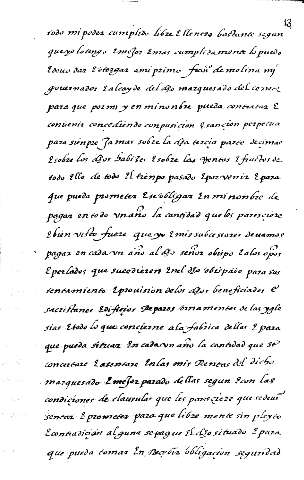 18
todo mi poder cumplido libre Ellenero bastante segun
que yo lo tengo E mejor E mas cumplidamente lo puedo
E devo dar E otorgar a mi primo fran^co de molina mi
governador E alcayde del dho marquesado del cenete
para que por mi y en mi nonbre pueda contratar E
convenir concediendo conpusicion E transaçion perpetua
para sienpre jamas sobre la dha tercia parte de cimas
E sobre los dhos habizes E sobre las Rentas E frutos de
todo Ello de todo El tienpo pasado E porvenir E para
que pueda prometer E obligar En mi nonbre de
pagar en todo un año la cantidad que les paresciere
E bien visto fuere que yo E mis subcessores devamos
pagar en cada un año al dho señor obispo E a los otros
E perlados que sucedieren En el dho obispado para sus
tentamiento E provision de los dhos beneficiados E
sacristanes Edificios Reparos ornamentos de las ygle
sias E todo lo que concierne a la fabrica dellas E para
que pueda situar En cada un año la cantidad que se
concertare E asentare En las mis Rentas del dicho
marquesado E mejor parado dellas segun E con las
condiciones de clausulas que les paresciere que se devan
sentar E prometer para que libremente sin pleyto
E contradicion alguna se pague El dho situado E para
que pueda tomar En Recibir obligacion seguridad